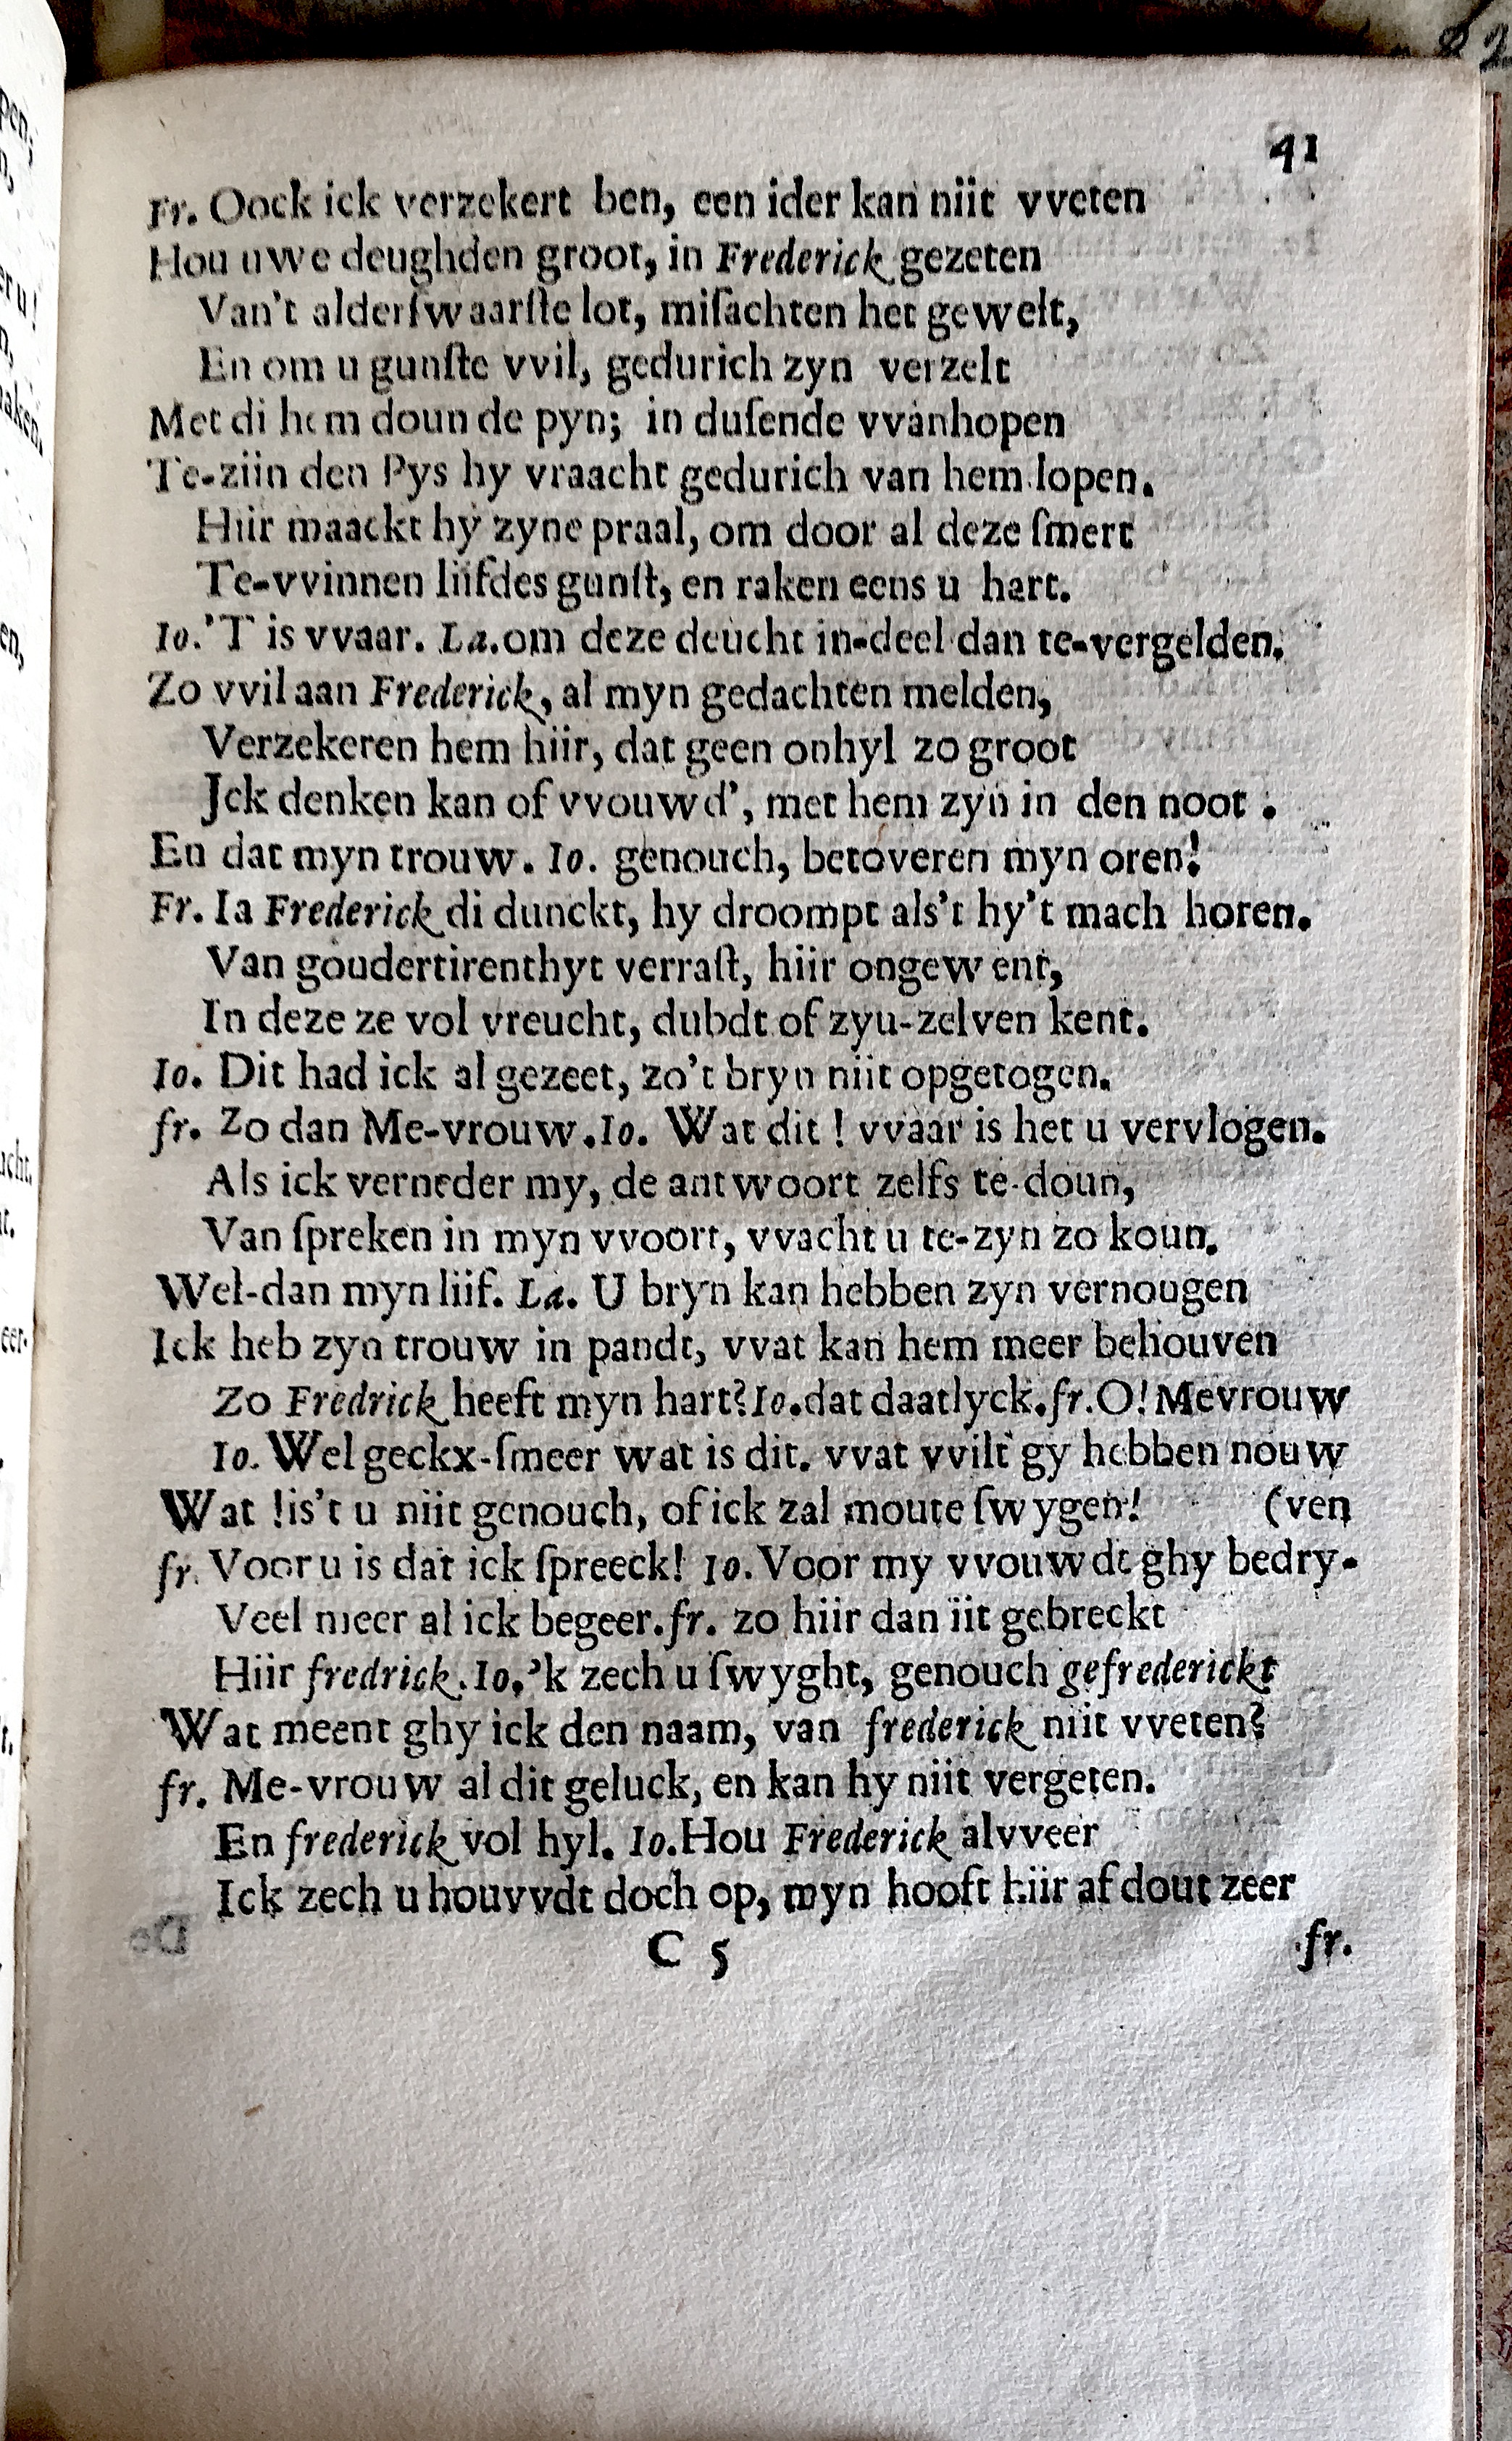 41
Fr. Oock ick verzekert ben, een ider kan niit vveten
Hou uwe deughden groot, in Frederick gezeten
Van't alderſwaarſte lot, miſachten het gewelt,
En om u gunſte vvil, gedurich zyn verzelt
Met di hem doun de pyn; in duſende vvanhopen
Te-ziin den Pys hy vraacht gedurich van hem lopen.
Hiir maackt hy zyne praal, om door al deze ſmert
Te-vvinnen liifdes gunſt, en raken eens u hart.
Io.'T is vvaar. La.om deze deucht in-deel dan te-vergelden.
Zo vvil aan Frederick, al myn gedachten melden,
Verzekeren hem hiir, dat geen onhyl zo groot
Jck denken kan of vvouwd', met hem zyn in den noot.
En dat myn trouw. Io. genouch, betoveren myn oren!
Fr. Ia Frederick di dunckt, hy droompt als't hy't mach horen.
Van goudertirenthyt verraſt, hiir ongewent,
In deze ze vol vreucht, dubdt of zyu-zelven kent.
Io. Dit had ick al gezeet, zo't bryn niit opgetogen.
fr. Zo dan Me-vrouw.Io. Wat dit! vvaar is het u vervlogen.
Als ick verneder my, de antwoort zelfs te-doun,
Van ſpreken in myn vvoort, vvacht u te-zyn zo koun.
Wel-dan myn liif. La. U bryn kan hebben zyn vernougen
Ick heb zyn trouw in pandt, vvat kan hem meer behouven
Zo Fredrick heeft myn hart?Io.dat daatlyck.fr.O!Mevrouw
Io. Wel geckx-ſmeer wat is dit. vvat vvilt gy hebben nouw
Wat !is't u niit genouch, of ick zal moute ſwygen! (ven
fr. Voor u is dat ick ſpreeck! Io. Voor my vvouwdt ghy bedry-
Veel meer al ick begeer.fr. zo hiir dan iit gebreckt
Hiir fredrick.Io.'k zech u ſwyght, genouch gefrederickt
Wat meent ghy ick den naam, van frederick niit vveten?
fr. Me-vrouw al dit geluck, en kan hy niit vergeten.
En frederick vol hyl. Io.Hou Frederick alvveer
Ick zech u houvvdt doch op, myn hooft hiir af dout zeer
C 5 fr.